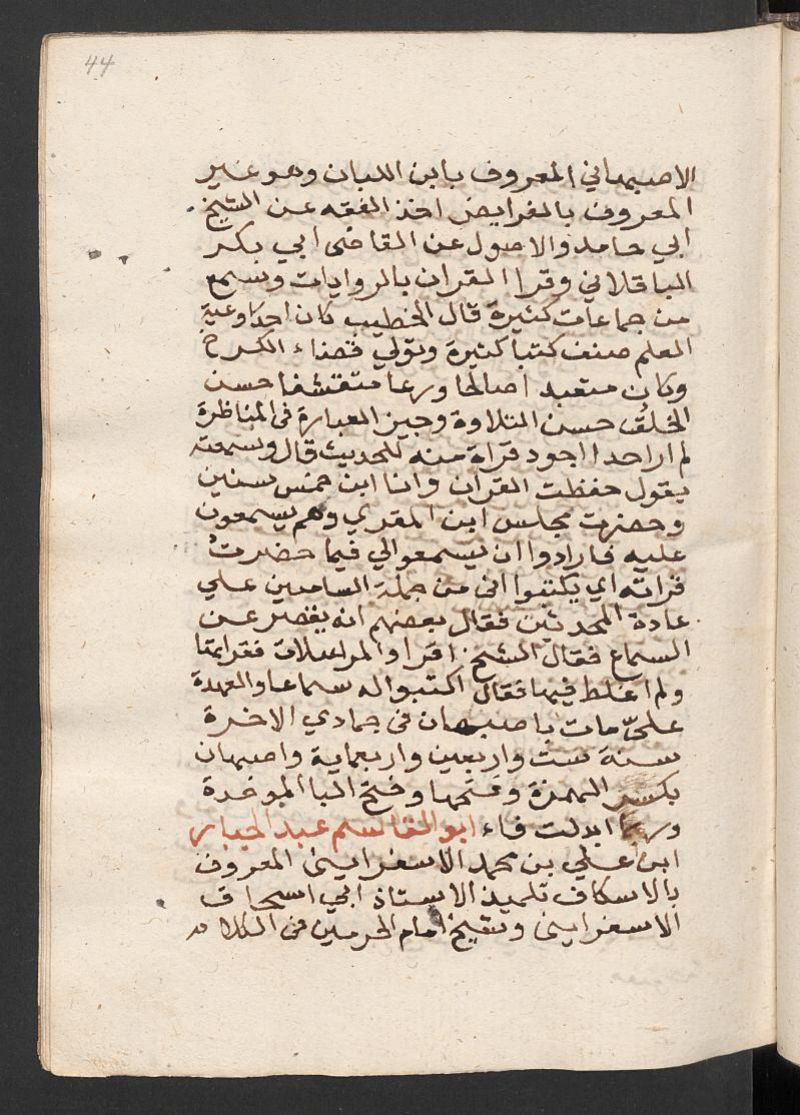 44
الاصبهاني المعروف بابن اللبان وهو غير
المعروف بالفرايض اخذ الفقه عن الشيخ
ابي حامد والاصول عن القاضى ابي بكر
الباقلاني وقرا القران بالروايات وسمع
من جماعات كثيرة قال الخطيب كان احد اوعية
العلم صنف كتبا كثيرة وتولي قضاء الكرخ
وكان متعبد اصالحا ورعا متقشفا حسن
الخلق حسن التلاوة وجيز العبارة فى المناظرة
لم ار احدا اجود قراة منه للحديث قال وسمعته
يقول حفظت القران وانا ابن خمس سنين
وحضرت مجلس ابن المقري وهم يسمعون
عليه فارادوا ان يسمعوا لي فيما حضرت
قراته اي يكتبوا انى من جملة السامعين علي
عادة المحدثين فقال بعضهم انه يقصر عن
السماع فقال الشيخ اقرا والمرسلات فقراتها
ولم اغلط فيها فقال اكتبوا له سماعا والعهدة
علىّ مات باصبهان فى جمادي الاخرة
سنة ست واربعين واربعماية واصبهان
بكسر الهمزة وفتحها وفتح البا الموحدة
وربما ابدلت فاء ابو القاسم عبد الجبار
ابن علي بن محمد الاسفراينى المعروف
بالاسكاف تلميذ الاستاذ ابي اسحاق
الاسفراينى وشيخ امام الحرمين فى الكلام